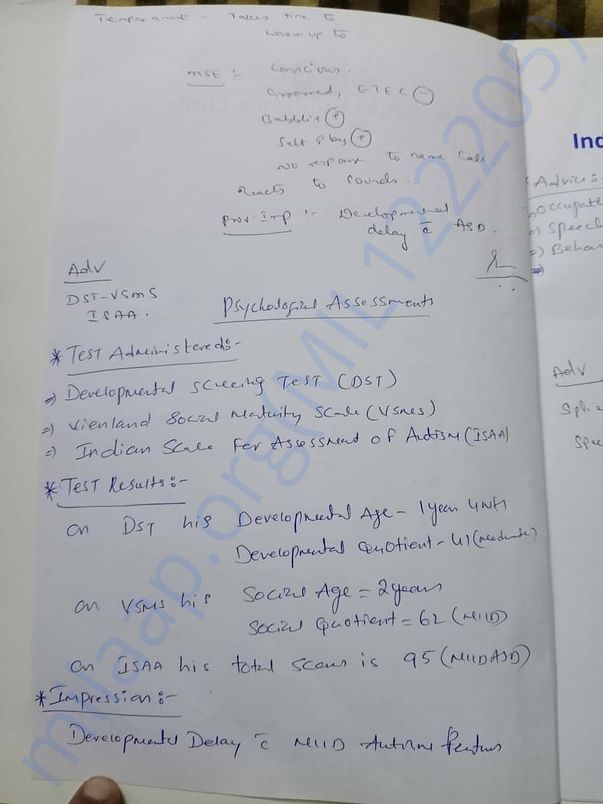 Temperament - Takes time to
warm up to
MSE :- Conscious.
Groomed, ETEC (-)
Babbling (+)
Self play (+)
No response to name call.
Reacts to sounds.
Prov. Imp :- Developmental
delay c̄ ASD.
Adv
DST-VSMS
ISAA.
Psychological Assessments
* Test Administered:-
=> Developmental Screeing Test (DST)
=> Vienland Social Maturity Scale (VSMS)
=> Indian Scale For Assessment of Autism (ISAA)
* Test Results:-
On DST his Developmental Age - 1 year
Developmental Quotient - 41 (moderate)
On VSMS his Social Age = 2 years
Social Quotient = 62 (Mild)
On ISAA his total score is 95 (Mild ASD)
* Impression:-
Developmental Delay c̄ Mild Autism Features
Ind
Advice:-
=> Occupat
=> Speech
=> Behav
Adv
Spee
milaap.org(MIL1222205)